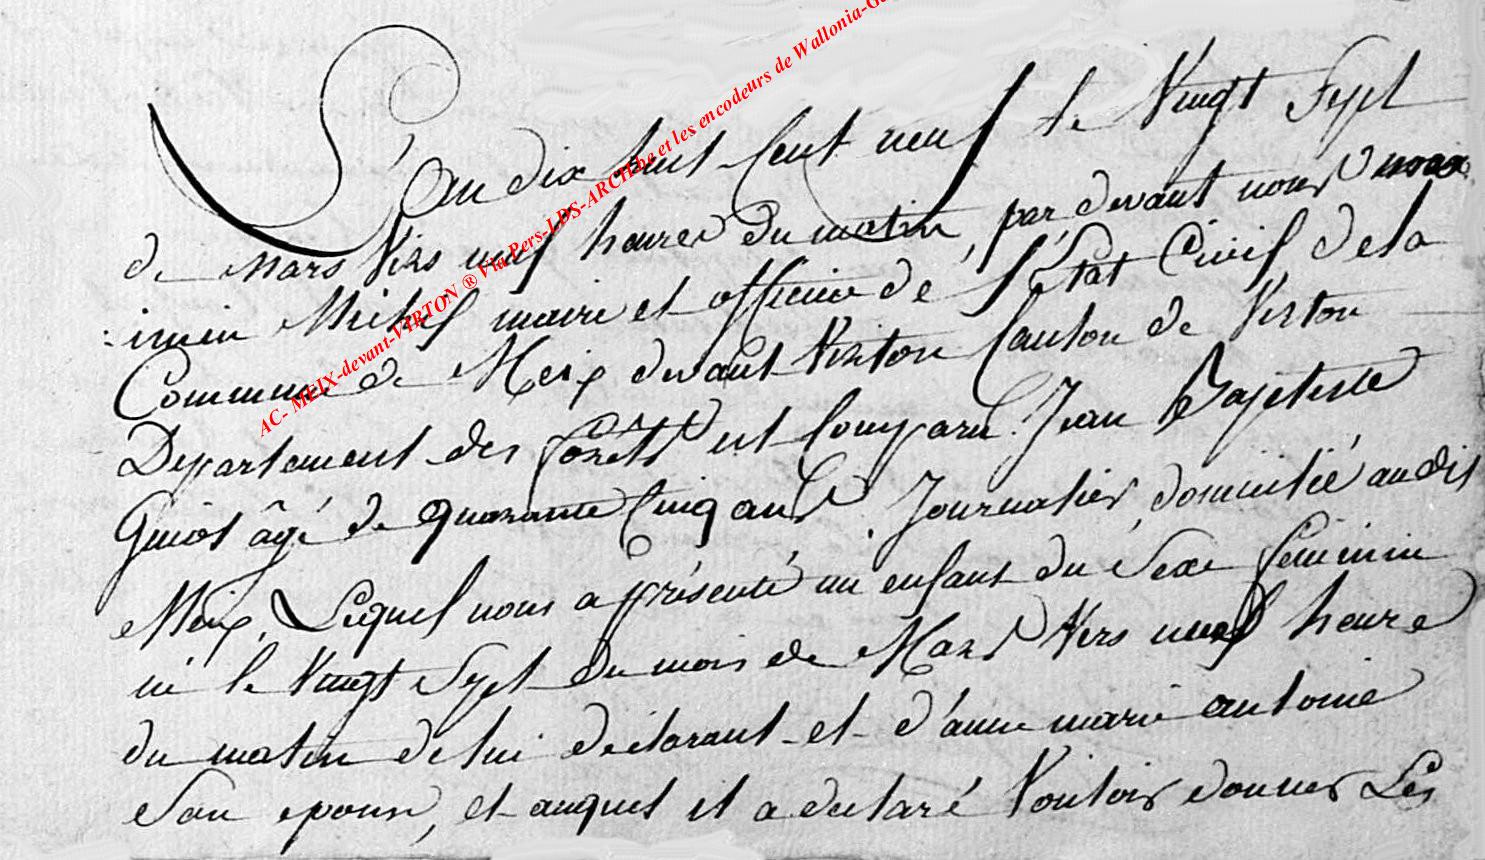 L'an dix huit Cent neuf le Vingt Sept
de Mars Vers neuf heures du matin par devant nous
Michel maire et officier de l'État Civil de la
Commune de Meix devant Virton Canton de Virton
Departement des forêts est Comparu Jean Baptiste
Guiot âgé de quarante Cinq ans Journalier, domicilié audit
Meix, Lequel nous a présenté un enfant du Sexe féminin
né le Vingt Sept du mois de Mars Vers neuf heure
du matin de lui déclarant et d'anne marie antoine
Son epouse, et auquel il a declaré Vouloir donner Les
AC- MEIX-devant-VIRTON ® Via Pers-LDS-ARCH.be et les encodeurs de Wallonia-G